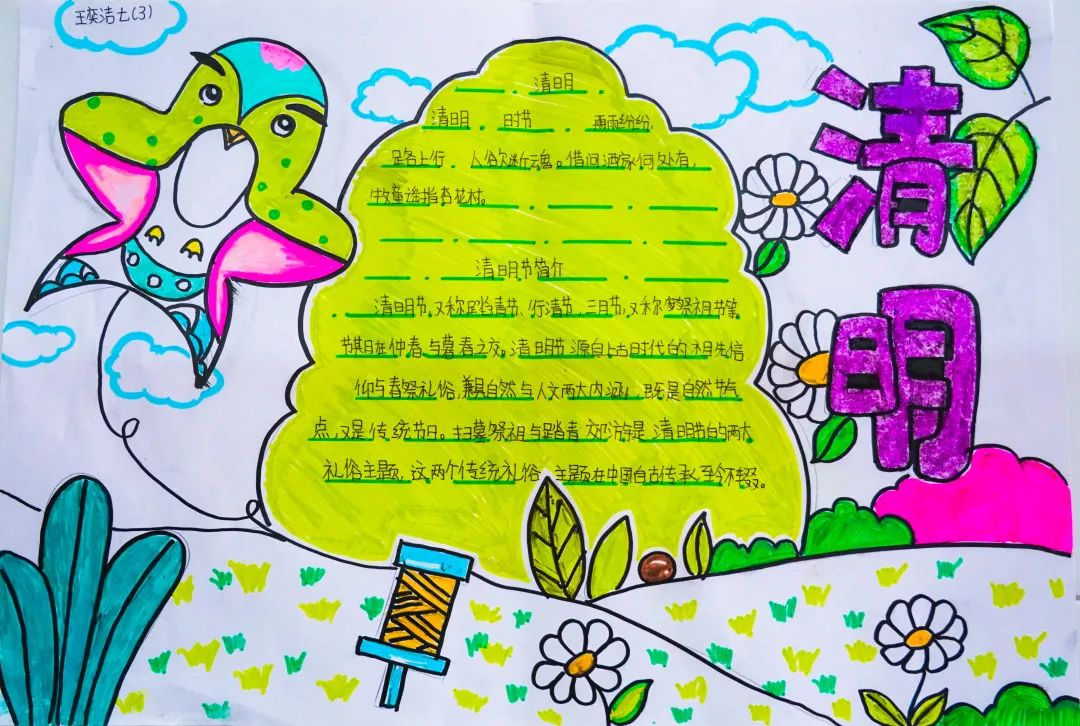 王奕洁七(3)
清明
清明
清明 时节 雨雨纷纷,
路上行 人欲断魂。借问酒家何处有,
牧童遥指杏花村。
清明节简介
清明节,又称踏青节、行清节、三月节,又称祭祖节等。
节期在仲春与暮春之交。清明节源自上古时代的祖先信
仰与春祭礼俗,兼具自然与人文两大内涵,既是自然节气
点,又是传统节日。扫墓祭祖与踏青郊游是清明节的两大
礼俗主题,这两个传统礼俗 主题在中国自古传承,至今不辍。